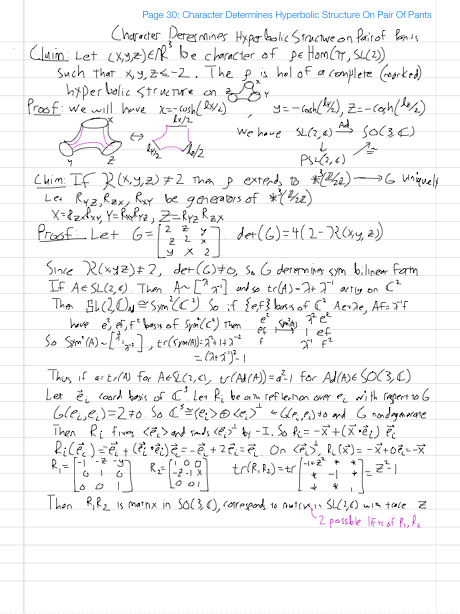 Page 30: Character Determines Hyperbolic Structure On Pair Of Pants
Character Determines Hyperbolic Structure on Pair of Pants
Claim: Let (x,y,z)∈ℝ³ be character of ρ∈Hom(π, SL(2))
such that x,y,z<-2. The ρ is hol of a complete (marked)
hyperbolic structure on X Y Z
Proof: we will have x=-cosh(lx/2), y=-cosh(ly/2), z=-cosh(lz/2)
X lx/2 We have SL(2,ℂ) Ad→ SO(3,ℂ)
Y Z ↔ ly/2 lz/2 ↓
PSL(2,ℂ)
Claim: If κ(x,y,z)≠2 Then ρ extends to *³(ℤ/2ℤ) → G uniquely
Let R_YZ, R_ZX, R_XY be generators of *³(ℤ/2ℤ)
X=R_ZX R_XY, Y=R_XY R_YZ, Z=R_YZ R_ZX
Proof: Let G=[2 z y; z 2 x; y x 2]. det(G)=4(2-κ(x,y,z))
Since κ(x,y,z)≠2, det(G)≠0, So G determines sym bilinear form
If A∈SL(2,ℂ). Then A~[λ λ⁻¹] and so tr(A)=λ+λ⁻¹ acts on ℂ²
Then SL(2,ℂ)↷≅Sym²(ℂ²). So if {e,f} basis of ℂ² Ae=λe, Af=λ⁻¹f
have e², ef, f² basis of Sym²(ℂ²) Then e² ef f Sym²(A)→ λ² e² 1 ef λ⁻² f²
So Sym²(A)~[λ² 1 λ⁻²], tr(Sym²(A))=λ²+1+λ⁻²
=(λ+λ⁻¹)²-1
Thus if a=tr(A) for A∈SL(2,ℂ), tr(Ad(A))=a²-1 for Ad(A)∈SO(3,ℂ)
Let e⃗ᵢ coord basis of ℂ³. Let Rᵢ be reflection over eᵢ with respect to G
G(eᵢ,eᵢ)=2≠0. So ℂ³≅⟨eᵢ⟩⊕⟨eᵢ⟩^⊥ G(eᵢ,eᵢ)≠0 and G nondegenerate
Then Rᵢ fixes ⟨eᵢ⟩ and sends ⟨eᵢ⟩^⊥ by -I. So Rᵢ=-x⃗+(x⃗•e⃗ᵢ) e⃗ᵢ
Rᵢ(e⃗ᵢ)=-e⃗ᵢ+(e⃗ᵢ•e⃗ᵢ)e⃗ᵢ=-e⃗ᵢ+2e⃗ᵢ=e⃗ᵢ. On ⟨e⃗ᵢ⟩^⊥, Rᵢ(x⃗)=-x⃗+0e⃗ᵢ=-x⃗
R₁=[-1 -z -y; 0 1 0; 0 0 1] R₂=[1 0 0; -z -1 -x; 0 0 1] tr(R₁R₂)=tr[-1+z² * *; * -1 *; * * 1]=z²-1
Then R₁R₂ is matrix in SO(3,ℂ), corresponds to matrix in SL(2,ℂ) with trace z
2 possible lifts of R₁, R₂